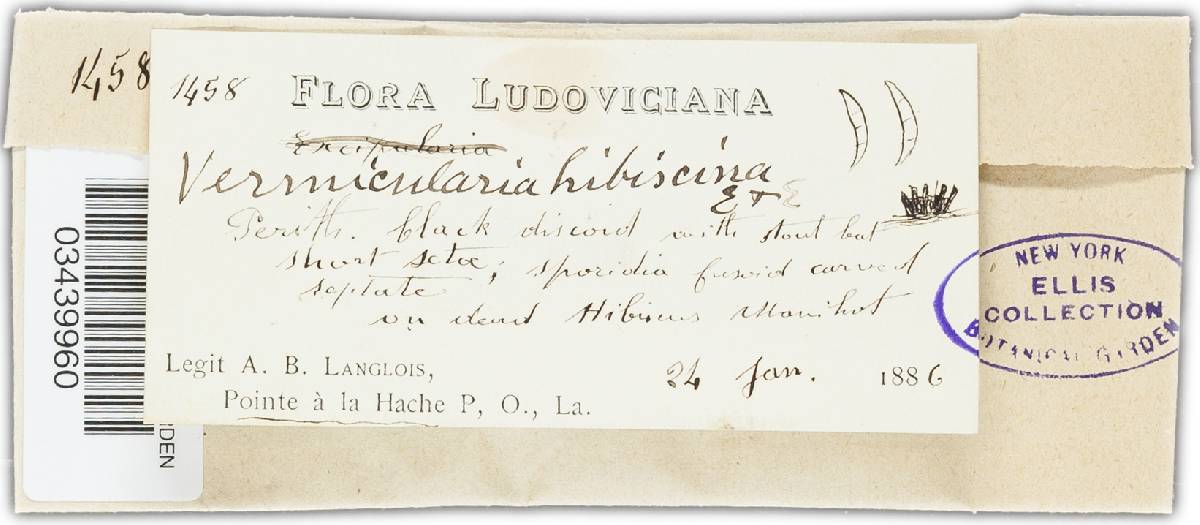 1458
1458 FLORA LUDOVICIANA
Excipularia
Vermicularia hibiscina
E & E
Perith. black discoid with stout but
short setae; sporidia fusoid curved
septate
on dead Hibiscus Manihot
Legit A. B. LANGLOIS,
24 Jan. 1886
Pointe à la Hache P, O., La.
NEW YORK
ELLIS
COLLECTION
BOTANICAL GARDEN
03439960
RDEN